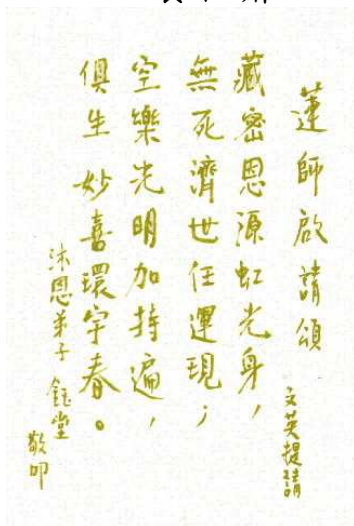 蓮師啟請頌
文英提請
藏密恩源虹光身，
無死濟世任運現；
空樂光明加持遍，
俱生妙喜環宇春。
沐恩弟子 鈺堂
敬叩